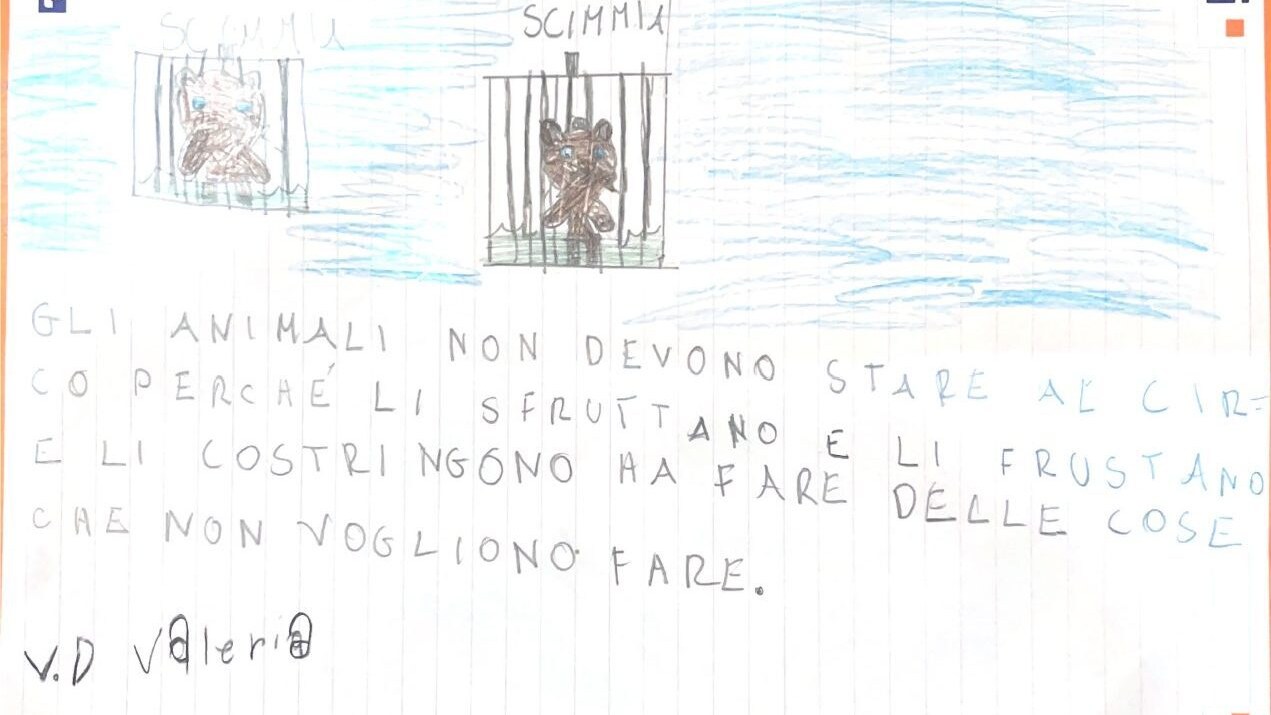 SCIMMIA SCIMMIA
GLI ANIMALI NON DEVONO STARE AL CIR=
CO PERCHÉ LI SFRUTTANO E LI FRUSTANO
E LI COSTRINGONO HA FARE DELLE COSE
CHE NON VOGLIONO FARE.
V.D Valeria